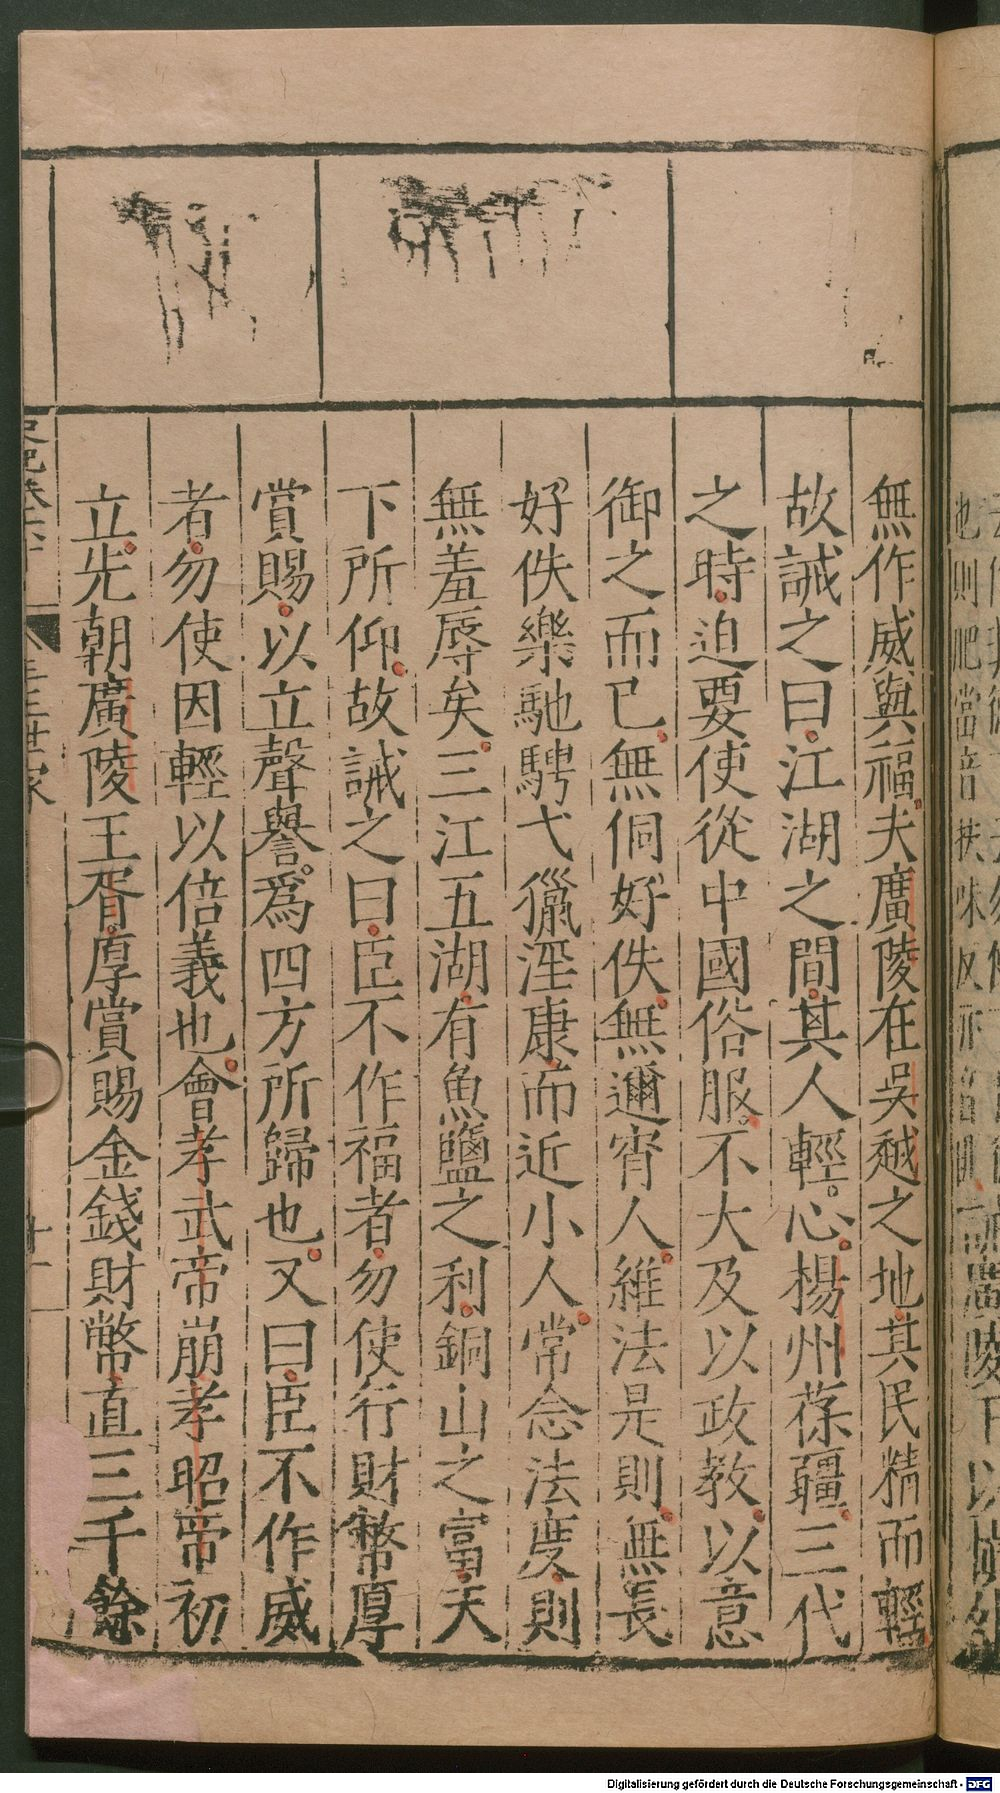 無作威與福夫廣陵在吳越之地其民精而輕
故誡之曰江湖之間其人輕心楊州葆疆三代
之時迫要使從中國俗服不大及以政教以意
御之而已無侗好佚無邇宵人維法是則無長
好佚樂馳騁弋獵淫康而近小人常念法度則
無羞辱矣三江五湖有魚鹽之利銅山之富天
下所仰故誡之曰臣不作福者勿使行財幣厚
賞賜以立聲譽爲四方所歸也又曰臣不作威
者勿使因輕以倍義也會孝武帝崩孝昭帝初
立先朝廣陵王胥厚賞賜金錢財幣直三千餘
三王世家
Digitalisierung gefördert durch die Deutsche Forschungsgemeinschaft - DFG